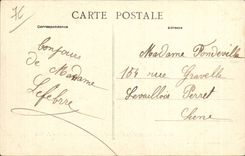 76
CARTE POSTALE
Correspondance
Adresse
bonjour
de Madame
Lefebvre
Madame Pondeville
154 rue Gravelle
Levallois Perret
Seine